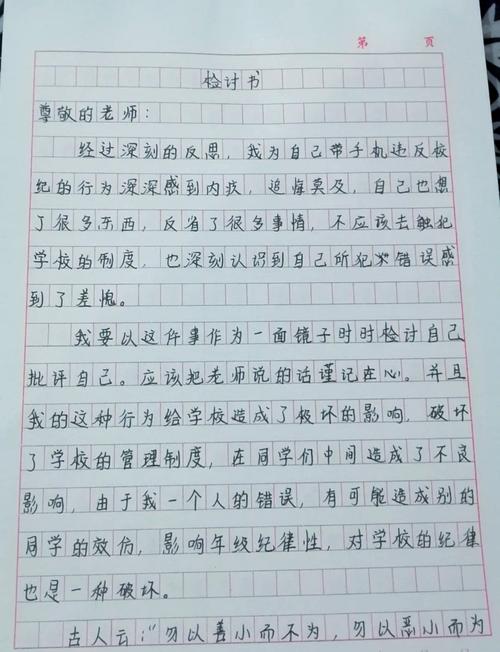 第 页
检讨书
尊敬的老师：
经过深刻的反思，我为自己带手机违反校
纪的行为深深感到内疚，追悔莫及，自己也想
了很多东西，反省了很多事情，不应该去触犯
学校的制度，也深刻认识到自己所犯错误感
到了羞愧。
我要以这件事作为一面镜子时时检讨自己
批评自己。应该把老师说的话谨记在心。并且
我的这种行为给学校造成了破坏的影响，破坏
了学校的管理制度，在同学们中间造成了不良
影响，由于我一个人的错误，有可能造成别的
同学的效仿，影响年级纪律性，对学校的纪律
也是一种破坏。
古人云：“勿以善小而不为，勿以恶小而为